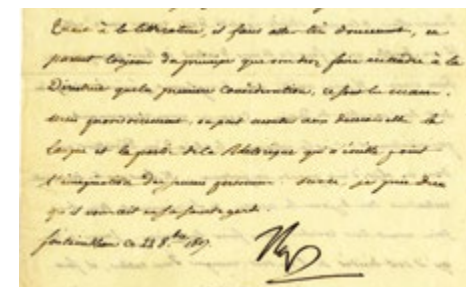 Quant à la littérature, il faut aller très doucement, en
partant toujours du principe que vous devez faire entendre à la
Directrice que la première considération, ce sont les mœurs.
mais provisoirement, on peut montrer aux demoiselles la
langue et la partie de la Rhétorique qui n'exalte point
l'imagination des jeunes personnes. Sur ce, je prie Dieu
qu'il vous ait en sa sainte garde.
fontainebleau ce 23 8.bre 1807.